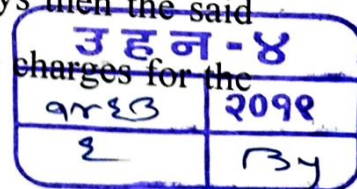 ys then the said
उ ह न - ४
charges for the
१४६३ २०१९
६